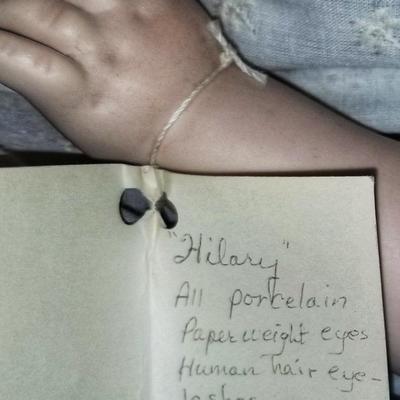 "Hilary"
All porcelain
Paperweight eyes
Human hair eye-
lashes